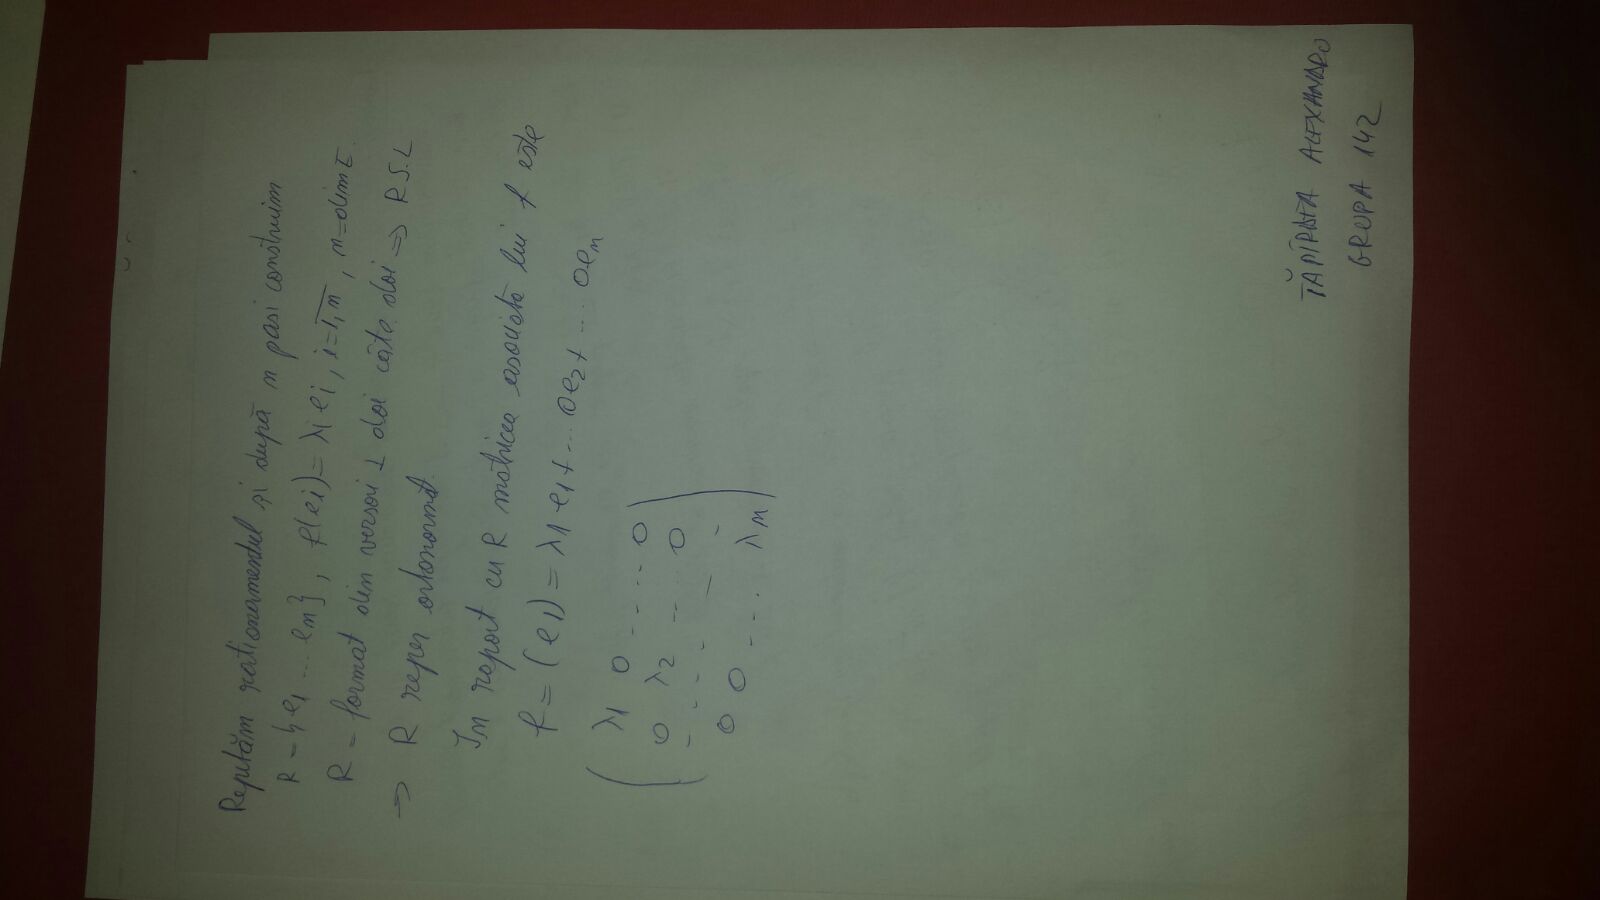 Repetăm rationamentul și după n pasi construim
R = {e1 .... en}, f(ei) = λi ei, i = 1,n, n = dim E.
R = format din versori ⊥ doi câte doi ⇒ R S.L
⇒ R reper ortonormat.
In raport cu R matricea asociată lui f este
f = (e1) = λ1 e1 + ... 0e2 + .... 0en
λ1 0 .... 0
0 λ2 ... 0
0 0 ... λn
ȚĂPÎRDEA ALEXANDRU
GRUPA 142